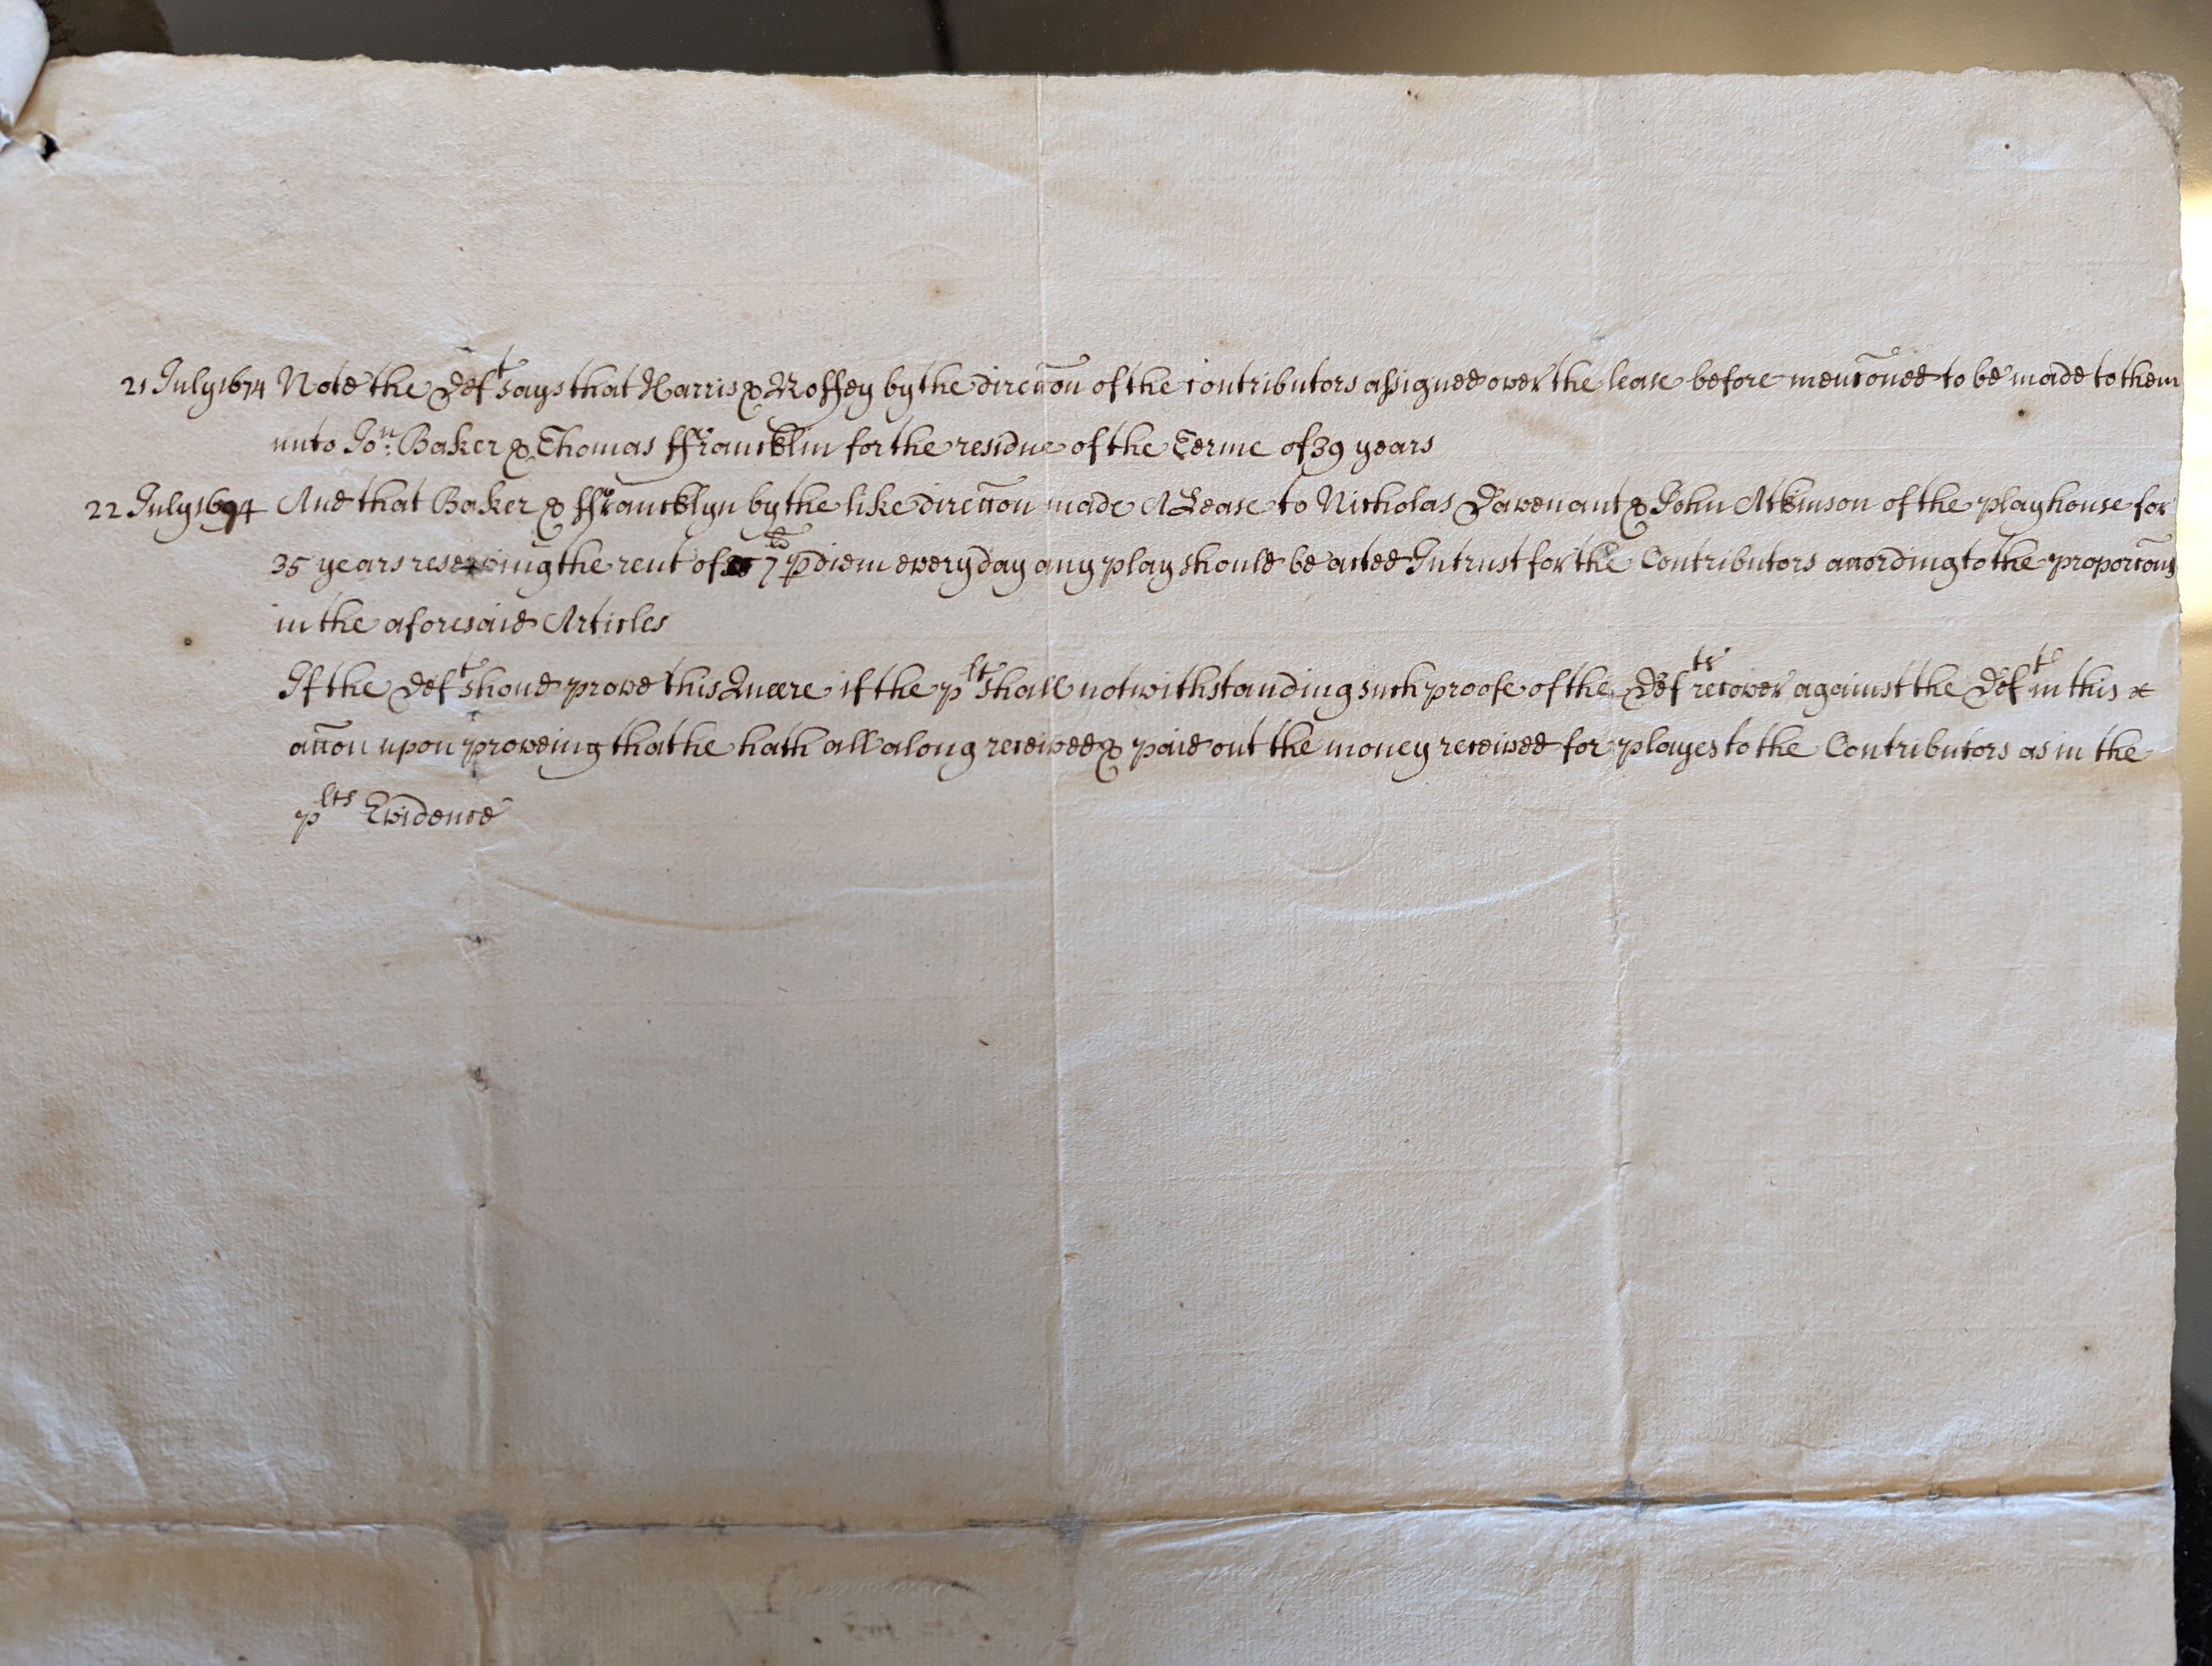 21 July 1674 Note the Def^t says that Harris & Roffey by the direccōn of the contributors assigned over the lease before mencōned to be made to them
unto Jo^n: Baker & Thomas ffrancklin for the residue of the Terme of 39 years
22 July 1674 And that Baker & ffrancklyn by the like direccōn made A Lease to Nicholas Davenant & John Atkinson of the playhouse for
35 years reserving the rent of 7^ld p diem every day any play should be acted In trust for the Contributors according to the proporcōns
in the aforesaid Articles
If the Def^t shoud prove this Quere if the p^lt shall notwithstanding such proofe of the Def^ts recover against the Def^t in this
accōn upon proveing that he hath all along received & paid out the money received for playes to the Contributors as in the
p^lts Evidence